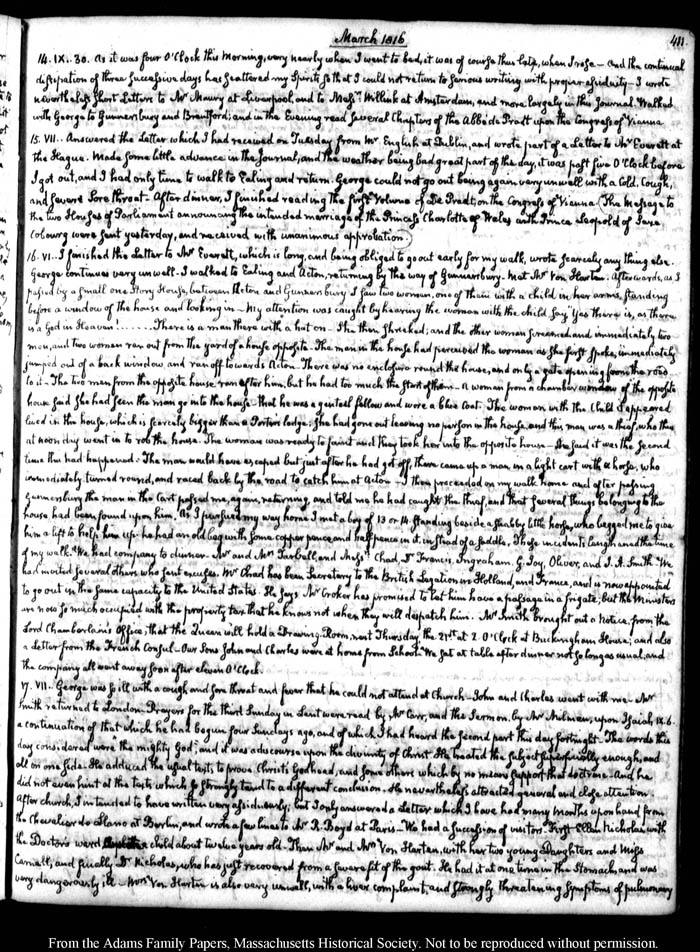 March 1816
411
14. IX. 30. As it was four O'Clock this Morning, very nearly when I went to bed, it was of course thus late, when I rose — and the continual
dissipation of three successive days has scattered my Spirits so that I could not return to serious writing with proper assiduity — I wrote
nevertheless short Letters to Mr Maury at Liverpool, and to Messrs Willink at Amsterdam, and more largely in this Journal. Walked
with George to Gunnersbury and Brentford; and in the Evening read several Chapters of the Abbé de Pradt upon the Congress of Vienna
15. VII. Answered the Letter which I had received on Tuesday from Mr English at Dublin, and wrote part of a Letter to Mr Everett at
the Hague. Made some little advance in the Journal, and the weather being bad great part of the day, it was past five O'Clock before
I got out, and I had only time to walk to Ealing and return. George could not go out being again very unwell with a Cold, Cough,
and severe Sore throat. After dinner, I finished reading the first Volume of De Pradt, on the Congress of Vienna. (The Message to
the two Houses of Parliament announcing the intended marriage of the Princess Charlotte of Wales with Prince Leopold of Saxe
Cobourg were sent yesterday, and received with unanimous approbation.)
16. VI. I finished the Letter to Mr Everett, which is long, and being obliged to go out early for my walk, wrote scarcely any thing else.
George continues very unwell. I walked to Ealing and Acton, returning by the way of Gunnersbury. Met Mr Von Harten. Afterwards, as I
passed by a small one Story House, between Acton and Gunnersbury I saw two women, one of them with a child in her arms, standing
before a window of the house and looking in — My attention was caught by hearing the woman with the child say "Yes there is, as there
is a God in Heaven! ...... There is a man there with a hat on — She then shrieked; and the other woman screamed and immediately two
men, and two women ran out from the yard of a house opposite. The man in the house had perceived the woman as she first spoke, immediately
jumped out of a back window, and ran off towards Acton. There was no enclosure round the house, and only a gate opening from the road
to it. The two men from the opposite house ran after him, but he had too much the start of them — A woman from a chamber window of the opposite
house said she had seen the man go into the house. that he was a genteel fellow and wore a blue Coat. The woman with the Child it appeared
lived in the house, which is scarcely bigger than a Porter's lodge. She had gone out leaving no person in the house, and this man was a thief, who thus
at noon day went in to rob the house. The woman was ready to faint and they took her into the opposite house — said it was the second
time this had happened. The man would have escaped but just after he had got off, there came up a man in a light cart with a horse, who
immediately turned round, and raced back by the road to catch him at Acton — I then proceeded on my walk home and after passing
Gunnersbury the man in the Cart passed me, again, returning, and told me he had caught the thief, and that several things belonging to the
house had been found upon him. As I pursued my way home I met a boy of 13 or 14 standing beside a shabby little horse, who begged me to give
him a lift to help him up. he had an old bag with some copper pence and half pence in it, instead of a saddle. These incidents the time
of my walk. We had company to dinner. Mr and Mrs Tarbell, and Messrs Chad, Dr Francis, Ingraham, G. Joy, Oliver, and J. A. Smith. We
had invited several others who sent excuses. Mr Chad has been Secretary to the British Legations in Holland, and France, and is now appointed
to go out in the same capacity to the United States. He says Mr Croker has promised to let him have a passage in a frigate; but the Ministers
are now so much occupied with the property tax that he knows not when they will dispatch him. Mr Smith brought out a Notice, from the
Lord Chamberlain's Office, that the Queen will hold a Drawing-Room next Thursday, the 21st at 2. O'Clock at Buckingham House; and also
a Letter from the French Consul — Our Sons John and Charles were at home from School. We sat at table after dinner not so long as usual, and
the company all went away soon after eleven O'Clock.
17. VII. George was so ill with a cough and sore throat and fever that he could not attend at Church — John and Charles went with me — Mr
Smith returned to London. Prayers for the third Sunday in Lent were read by Mr Carr, and the Sermon, by Mr Milman, upon Isaiah IX. 6.
a continuation of that which he had begun four Sundays ago, and of which I had heard the Second part this day fortnight. The words this
day considered were the mighty God; and it was a discourse upon the divinity of Christ. He treated the subject superficially enough, and
all on one side. He adduced the usual texts, to prove Christ's Godhead, and some others which by no means support that doctrine — And he
did not even hint at the texts which so strongly tend to a different conclusion. He nevertheless attracted general and close attention.
After church, I intended to have written very assiduously, but I only answered a Letter which I have had many months upon hand from
the Chevalier de at Berlin, and wrote a few lines to Mr R. Boyd at Paris — We had a succession of visitors. First Ellen Nicholas, with
the Doctor's ward a child about twelve years old — Then Mr and Mrs Von Harten, with her two young Daughters and Miss
Carnall, and finally Dr Nicholas, who has just recovered from a severe fit of the gout. He had it at one time in the Stomach, and was
very dangerously ill — Mrs Von Harten is also very unwell, with a liver complaint, and strongly threatening symptoms of pulmonary
From the Adams Family Papers, Massachusetts Historical Society. Not to be reproduced without permission.